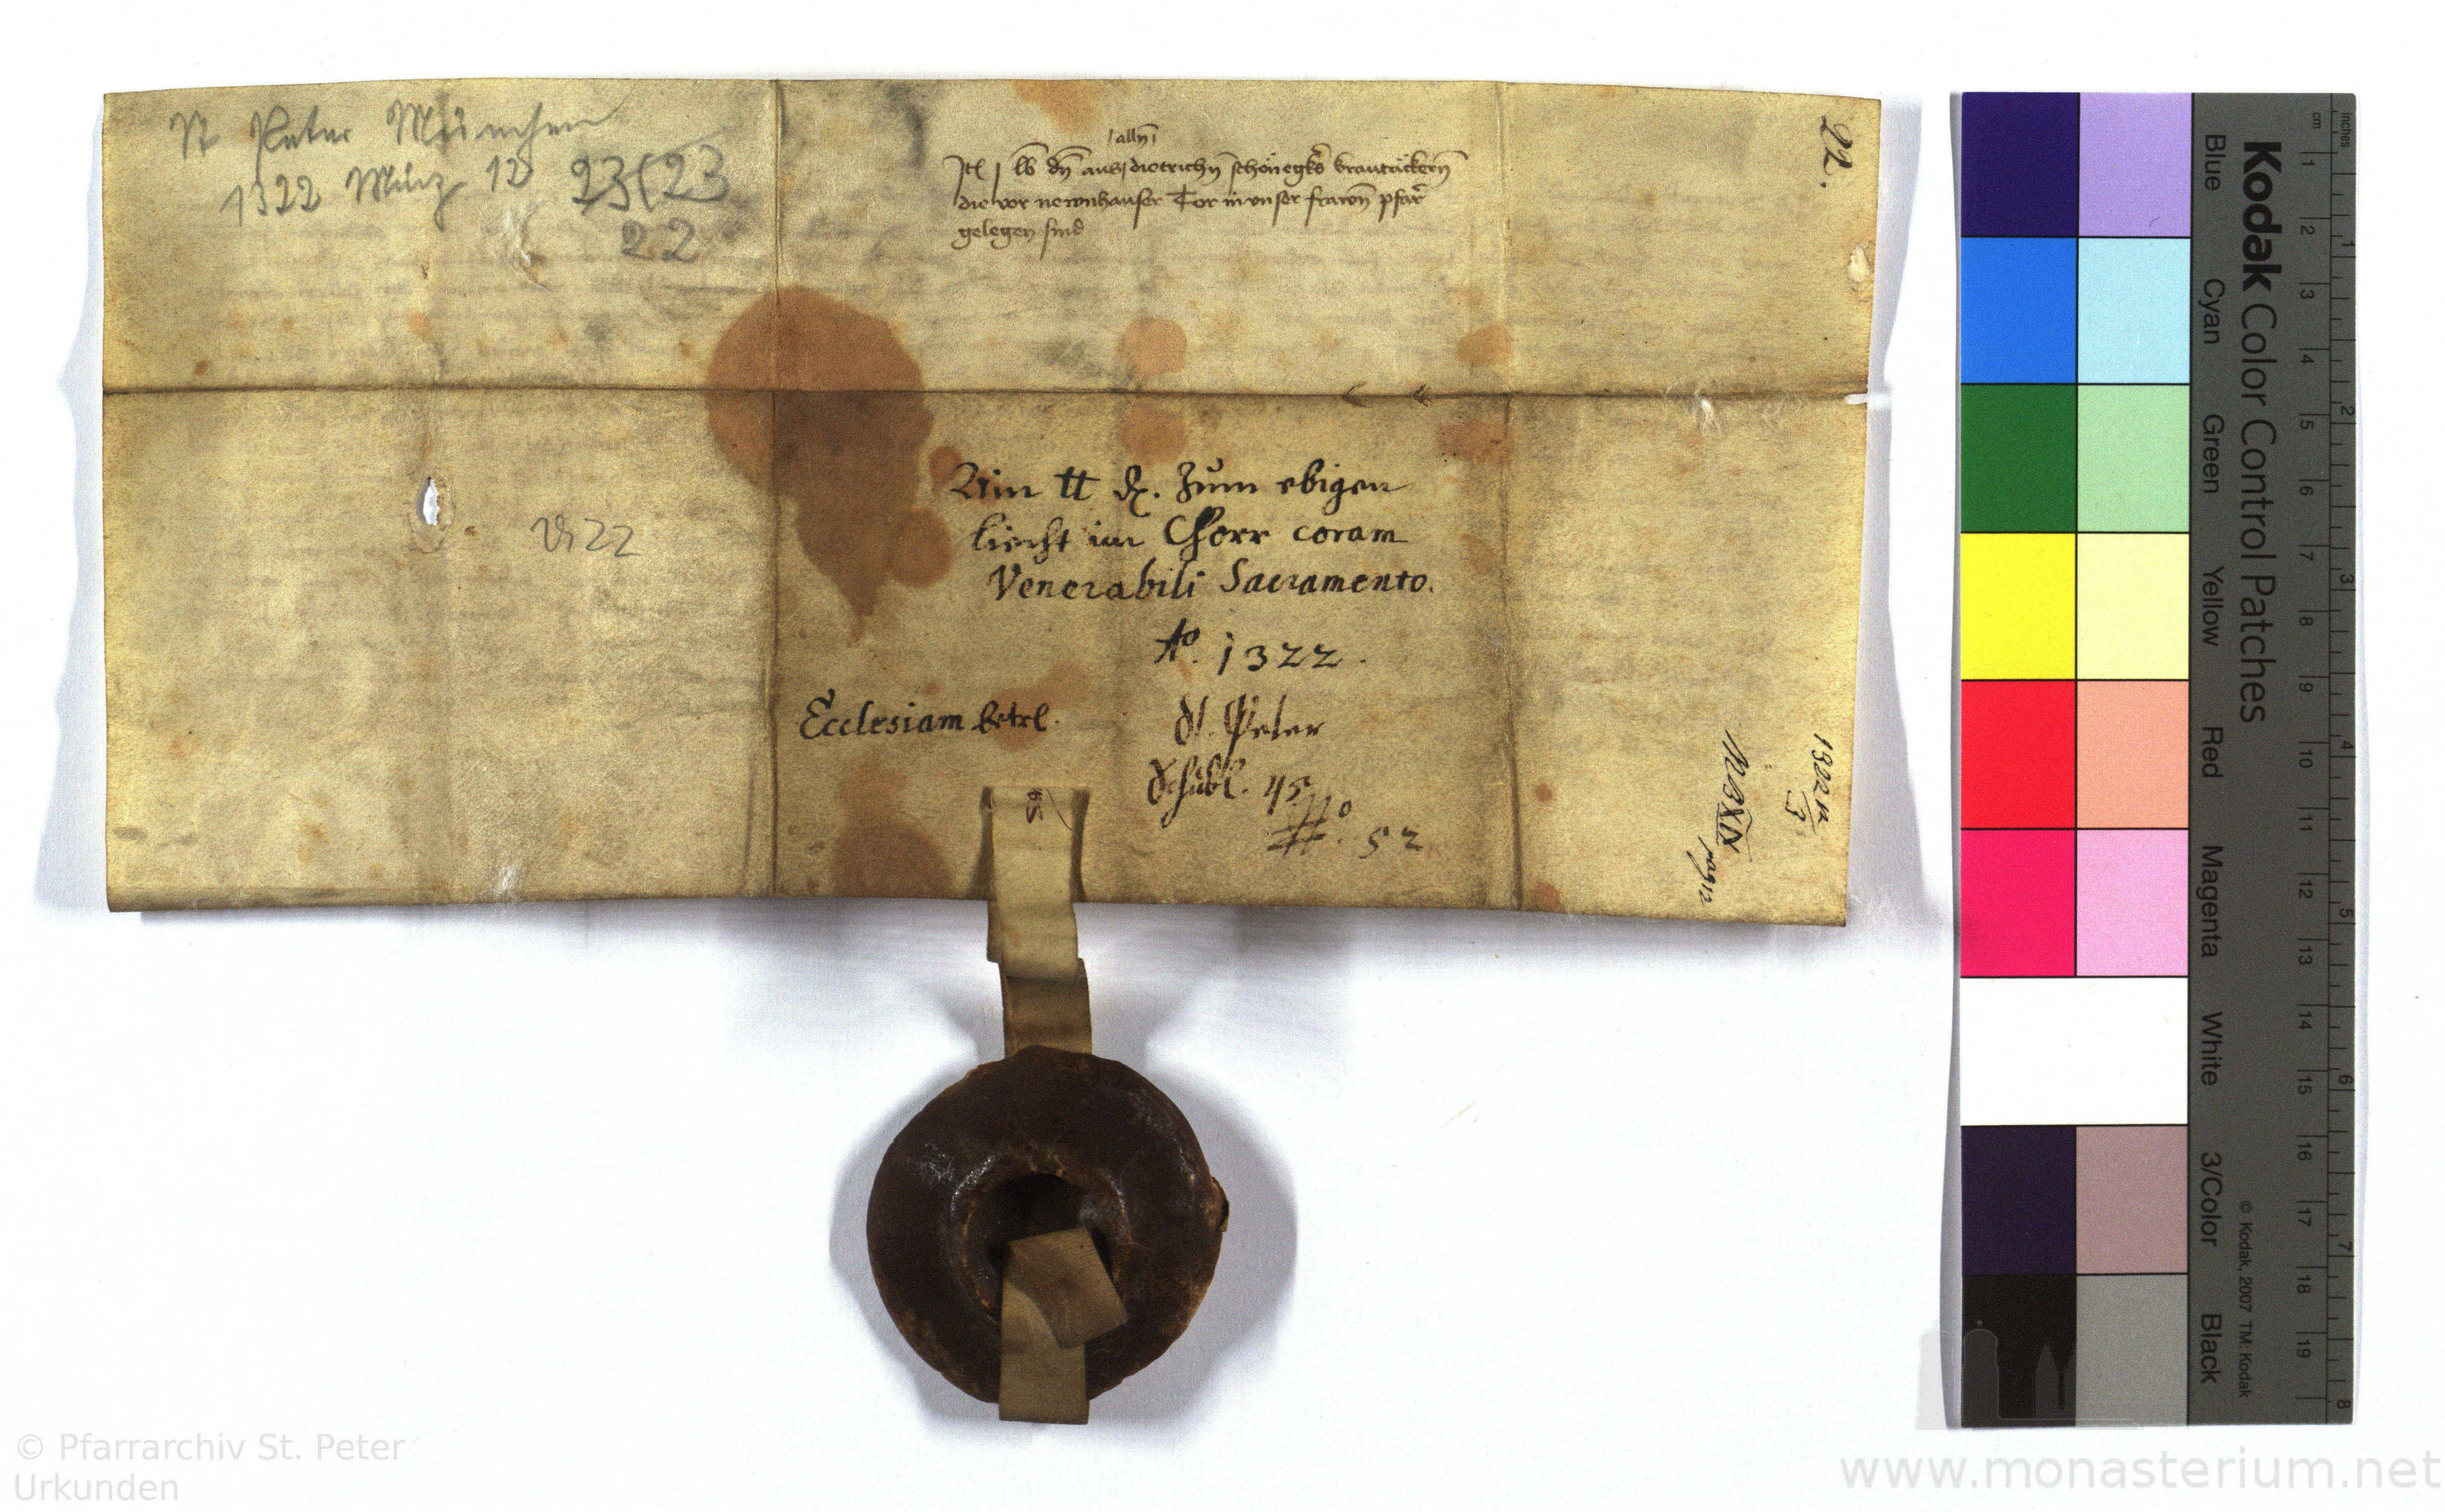 St Peter München
1322 März 12 23(23
22
/alln̄/
Itē j lb dn̄ aus dietrichn̄ schönegks krautäckern̄
die vor newnhauser Tor in vnser frawn̄ pfarr̄
gelegen sind
22.
Ain tt ₰. Zum ebigen
liecht im Chorr coram
Venerabili Sacramento.
Aº. 1322.
Vi 22
Ecclesiam betrl.
St. Peter
Schubl. 45.
Nº. 52
45
1322 12/3
© Pfarrarchiv St. Peter
Urkunden
www.monasterium.net
Kodak Color Control Patches
Blue Cyan Green Yellow Red Magenta White 3/Color Black
© Kodak, 2007 TM: Kodak
cm 1 2 3 4 5 6 7 8 9 10 11 12 13 14 15 16 17 18 19
inches 1 2 3 4 5 6 7 8